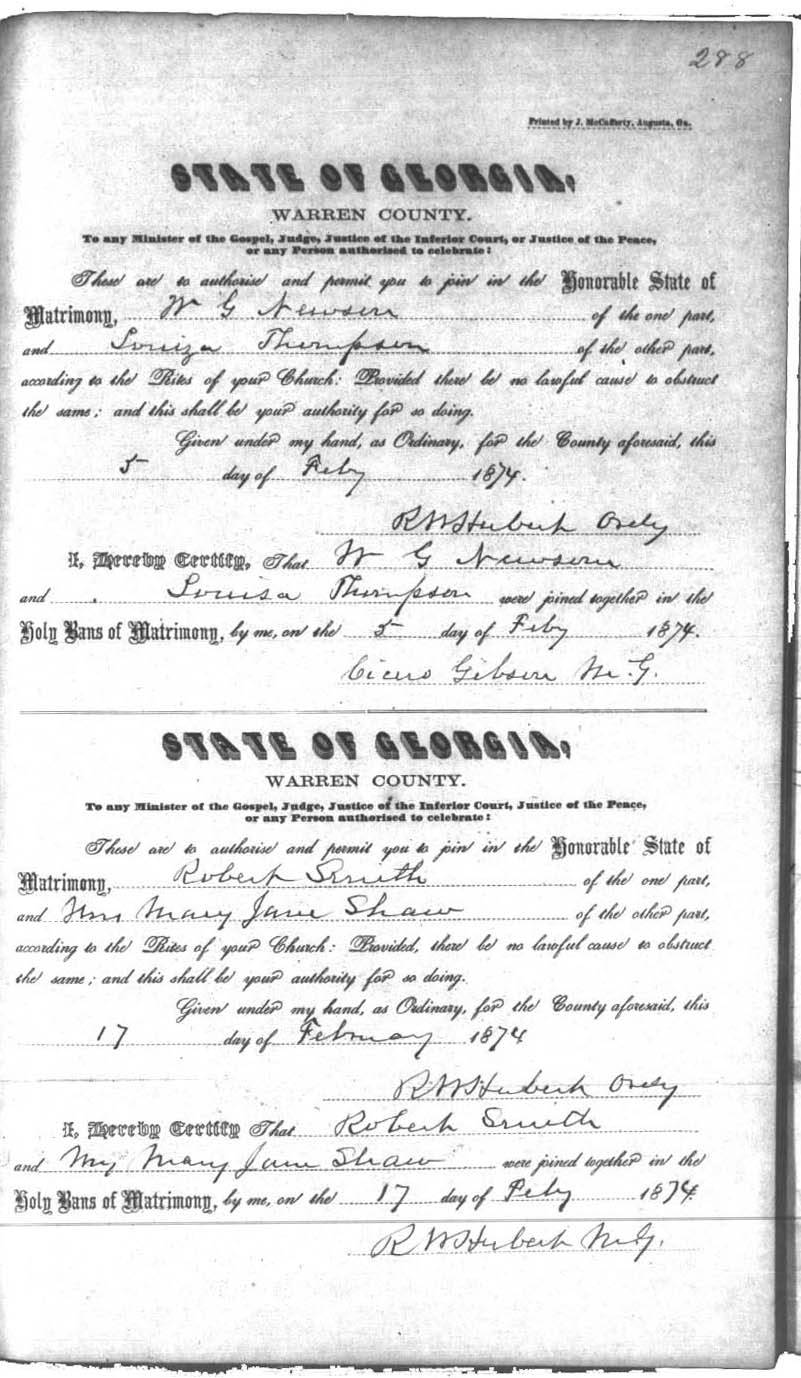 288
Printed by J. McCafferty, Augusta, Ga.
STATE OF GEORGIA,
WARREN COUNTY.
To any Minister of the Gospel, Judge, Justice of the Inferior Court, or Justice of the Peace,
or any Person authorised to celebrate:
These are to authorise and permit you to join in the Honorable State of
Matrimony, W G Newsom of the one part,
and Louiza Thompson of the other part,
according to the Rites of your Church: Provided there be no lawful cause to obstruct
the same; and this shall be your authority for so doing.
Given under my hand, as Ordinary, for the County aforesaid, this
5 day of Feby 1874.
R W Hubert Ordy
I, Hereby Certify, That W G Newsom
and Louisa Thompson were joined together in the
Holy Bans of Matrimony, by me, on the 5 day of Feby 1874.
Cicero Gibson M. G.
STATE OF GEORGIA,
WARREN COUNTY.
To any Minister of the Gospel, Judge, Justice of the Inferior Court, Justice of the Peace,
or any Person authorised to celebrate:
These are to authorise and permit you to join in the Honorable State of
Matrimony, Robert Smith of the one part,
and Mrs Mary Jane Shaw of the other part,
according to the Rites of your Church: Provided, there be no lawful cause to obstruct
the same; and this shall be your authority for so doing.
Given under my hand, as Ordinary, for the County aforesaid, this
17 day of February 1874
R W Hubert Ordy
I, Hereby Certify That Robert Smith
and Mary Jane Shaw were joined together in the
Holy Bans of Matrimony, by me, on the 17 day of Feby 1874.
R W Hubert M.G.